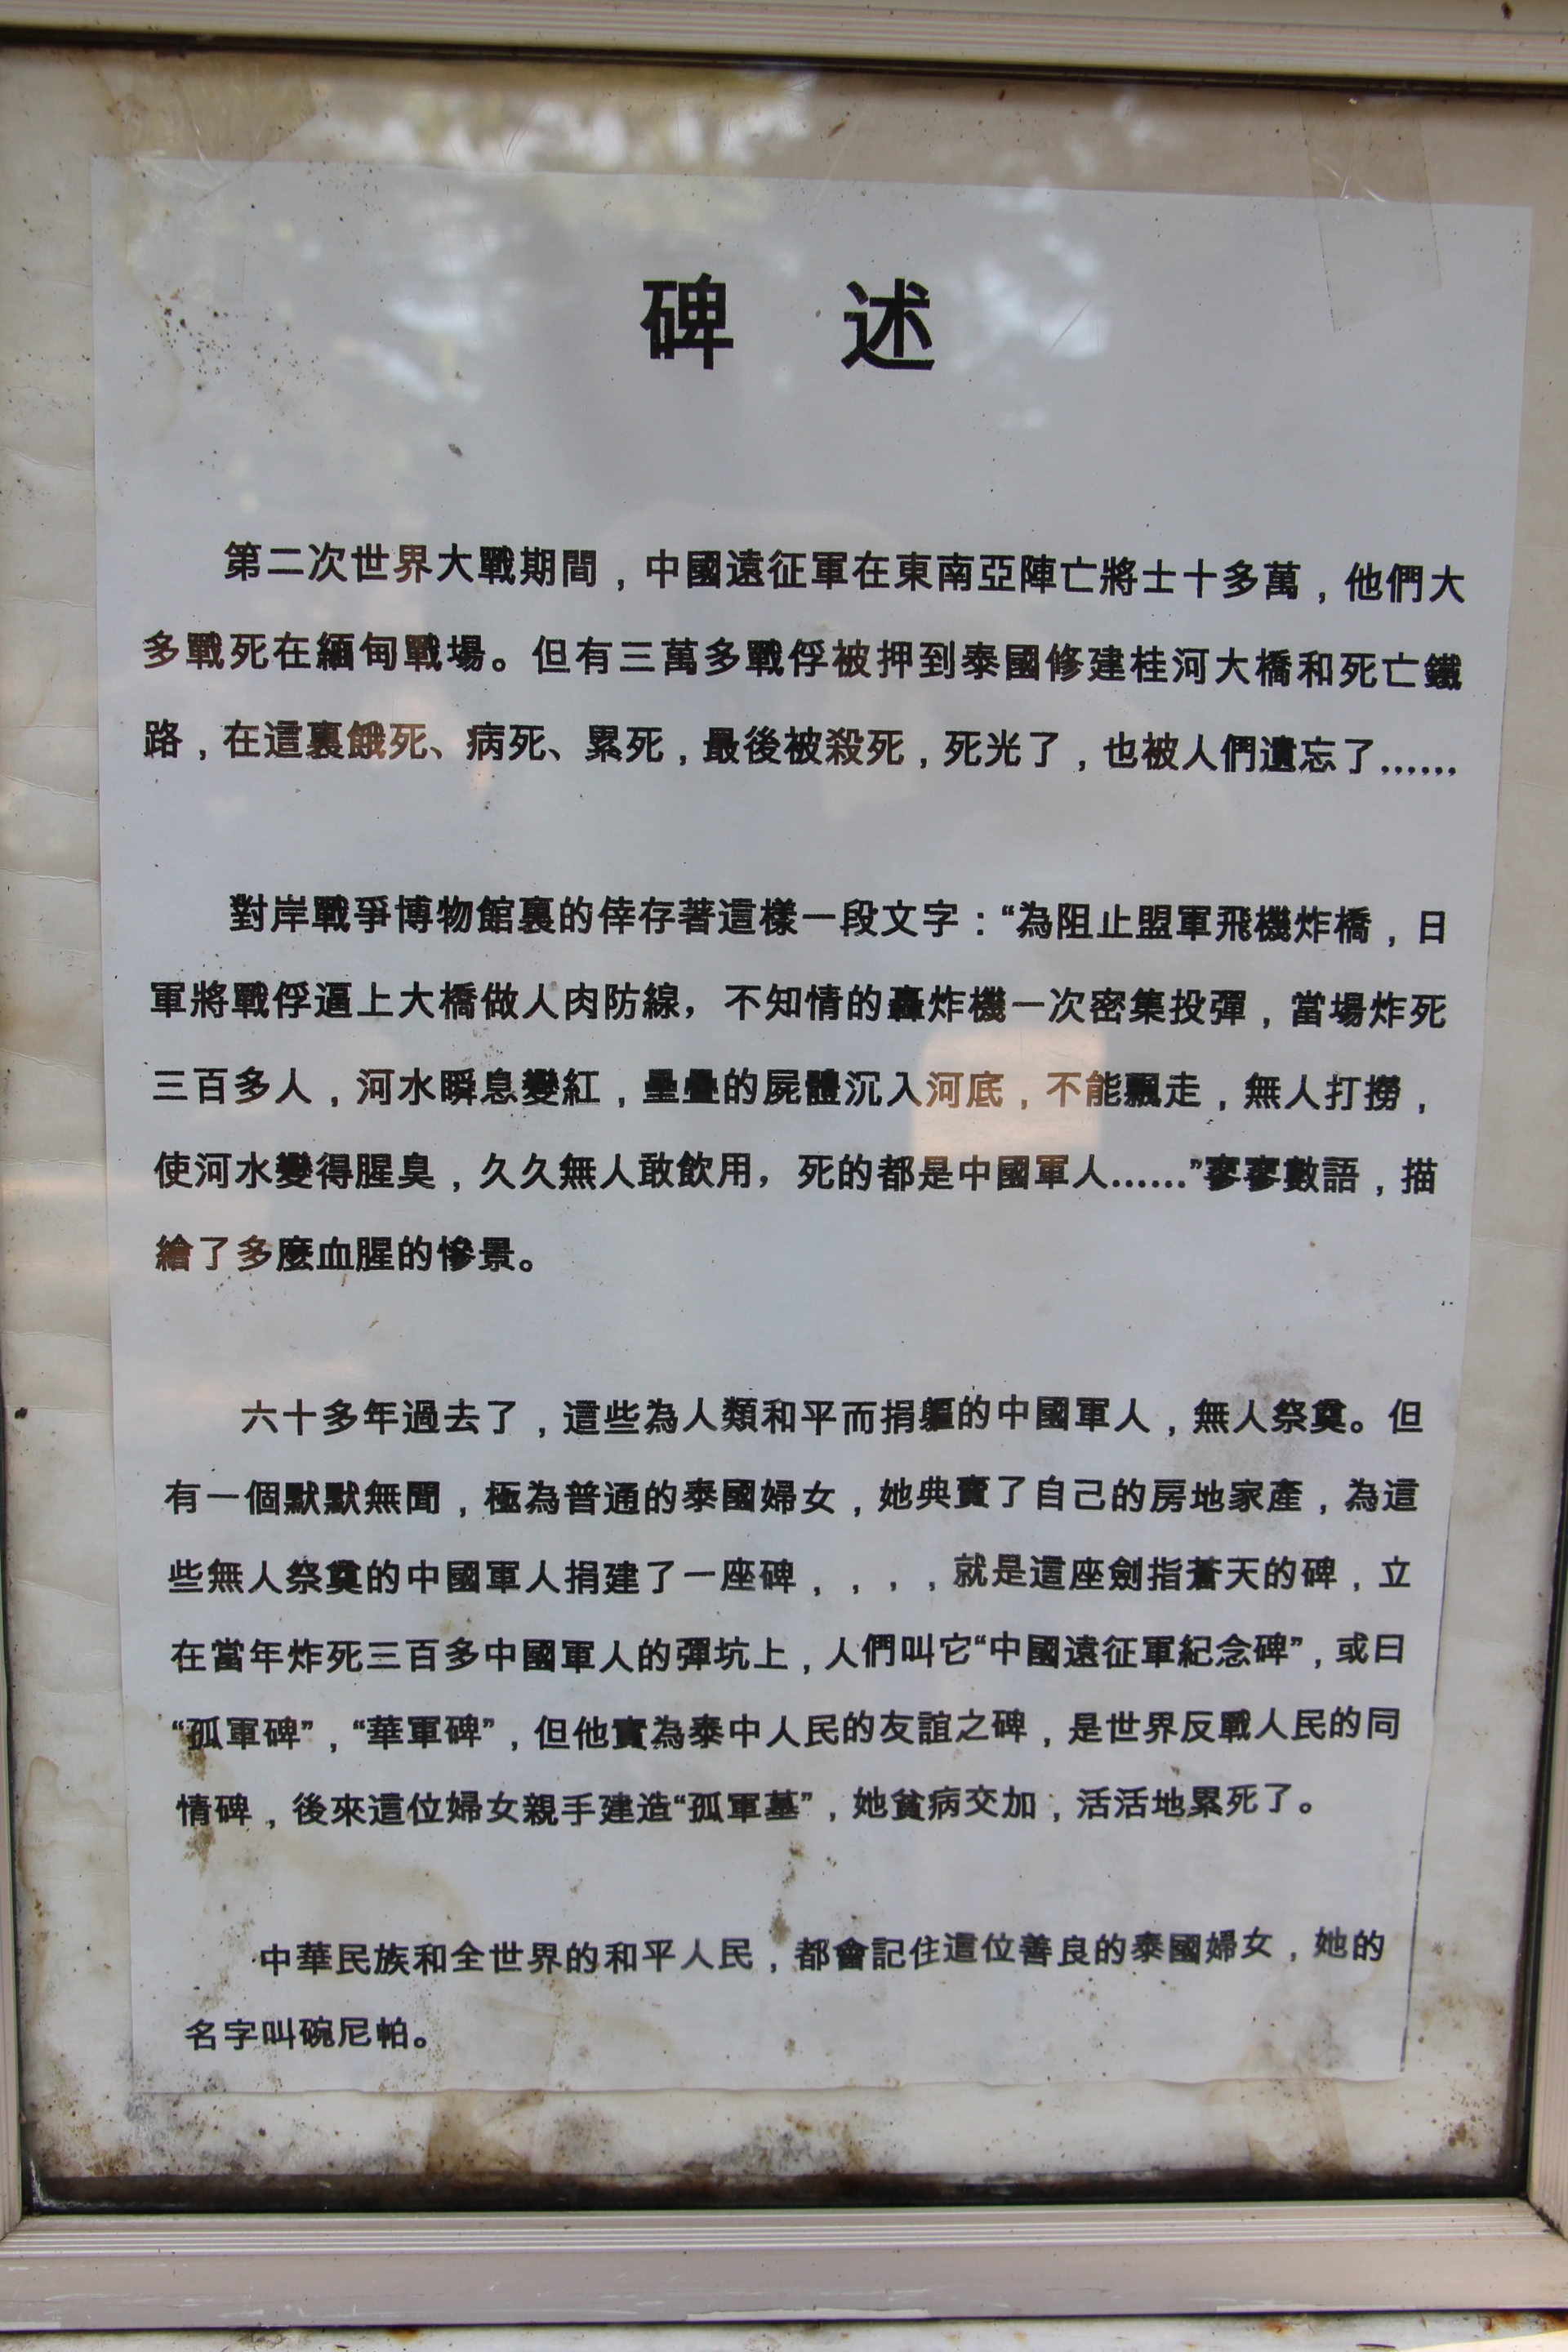 碑 述
第二次世界大戰期間，中國遠征軍在東南亞陣亡將士十多萬，他們大
多戰死在緬甸戰場。但有三萬多戰俘被押到泰國修建桂河大橋和死亡鐵
路，在這裏餓死、病死、累死，最後被殺死，死光了，也被人們遺忘了……
對岸戰爭博物館裏的倖存著這樣一段文字：“為阻止盟軍飛機炸橋，日
軍將戰俘逼上大橋做人肉防線，不知情的轟炸機一次密集投彈，當場炸死
三百多人，河水瞬息變紅，壘疊的屍體沉入河底，不能飄走，無人打撈，
使河水變得腥臭，久久無人敢飲用，死的都是中國軍人……”寥寥數語，描
繪了多麼血腥的慘景。
六十多年過去了，這些為人類和平而捐軀的中國軍人，無人祭奠。但
有一個默默無聞，極為普通的泰國婦女，她典賣了自己的房地家產，為這
些無人祭奠的中國軍人捐建了一座碑，，，，就是這座劍指蒼天的碑，立
在當年炸死三百多中國軍人的彈坑上，人們叫它“中國遠征軍紀念碑”，或曰
“孤軍碑”，“華軍碑”，但他實為泰中人民的友誼之碑，是世界反戰人民的同
情碑，後來這位婦女親手建造“孤軍墓”，她貧病交加，活活地累死了。
中華民族和全世界的和平人民，都會記住這位善良的泰國婦女，她的
名字叫碗尼帕。